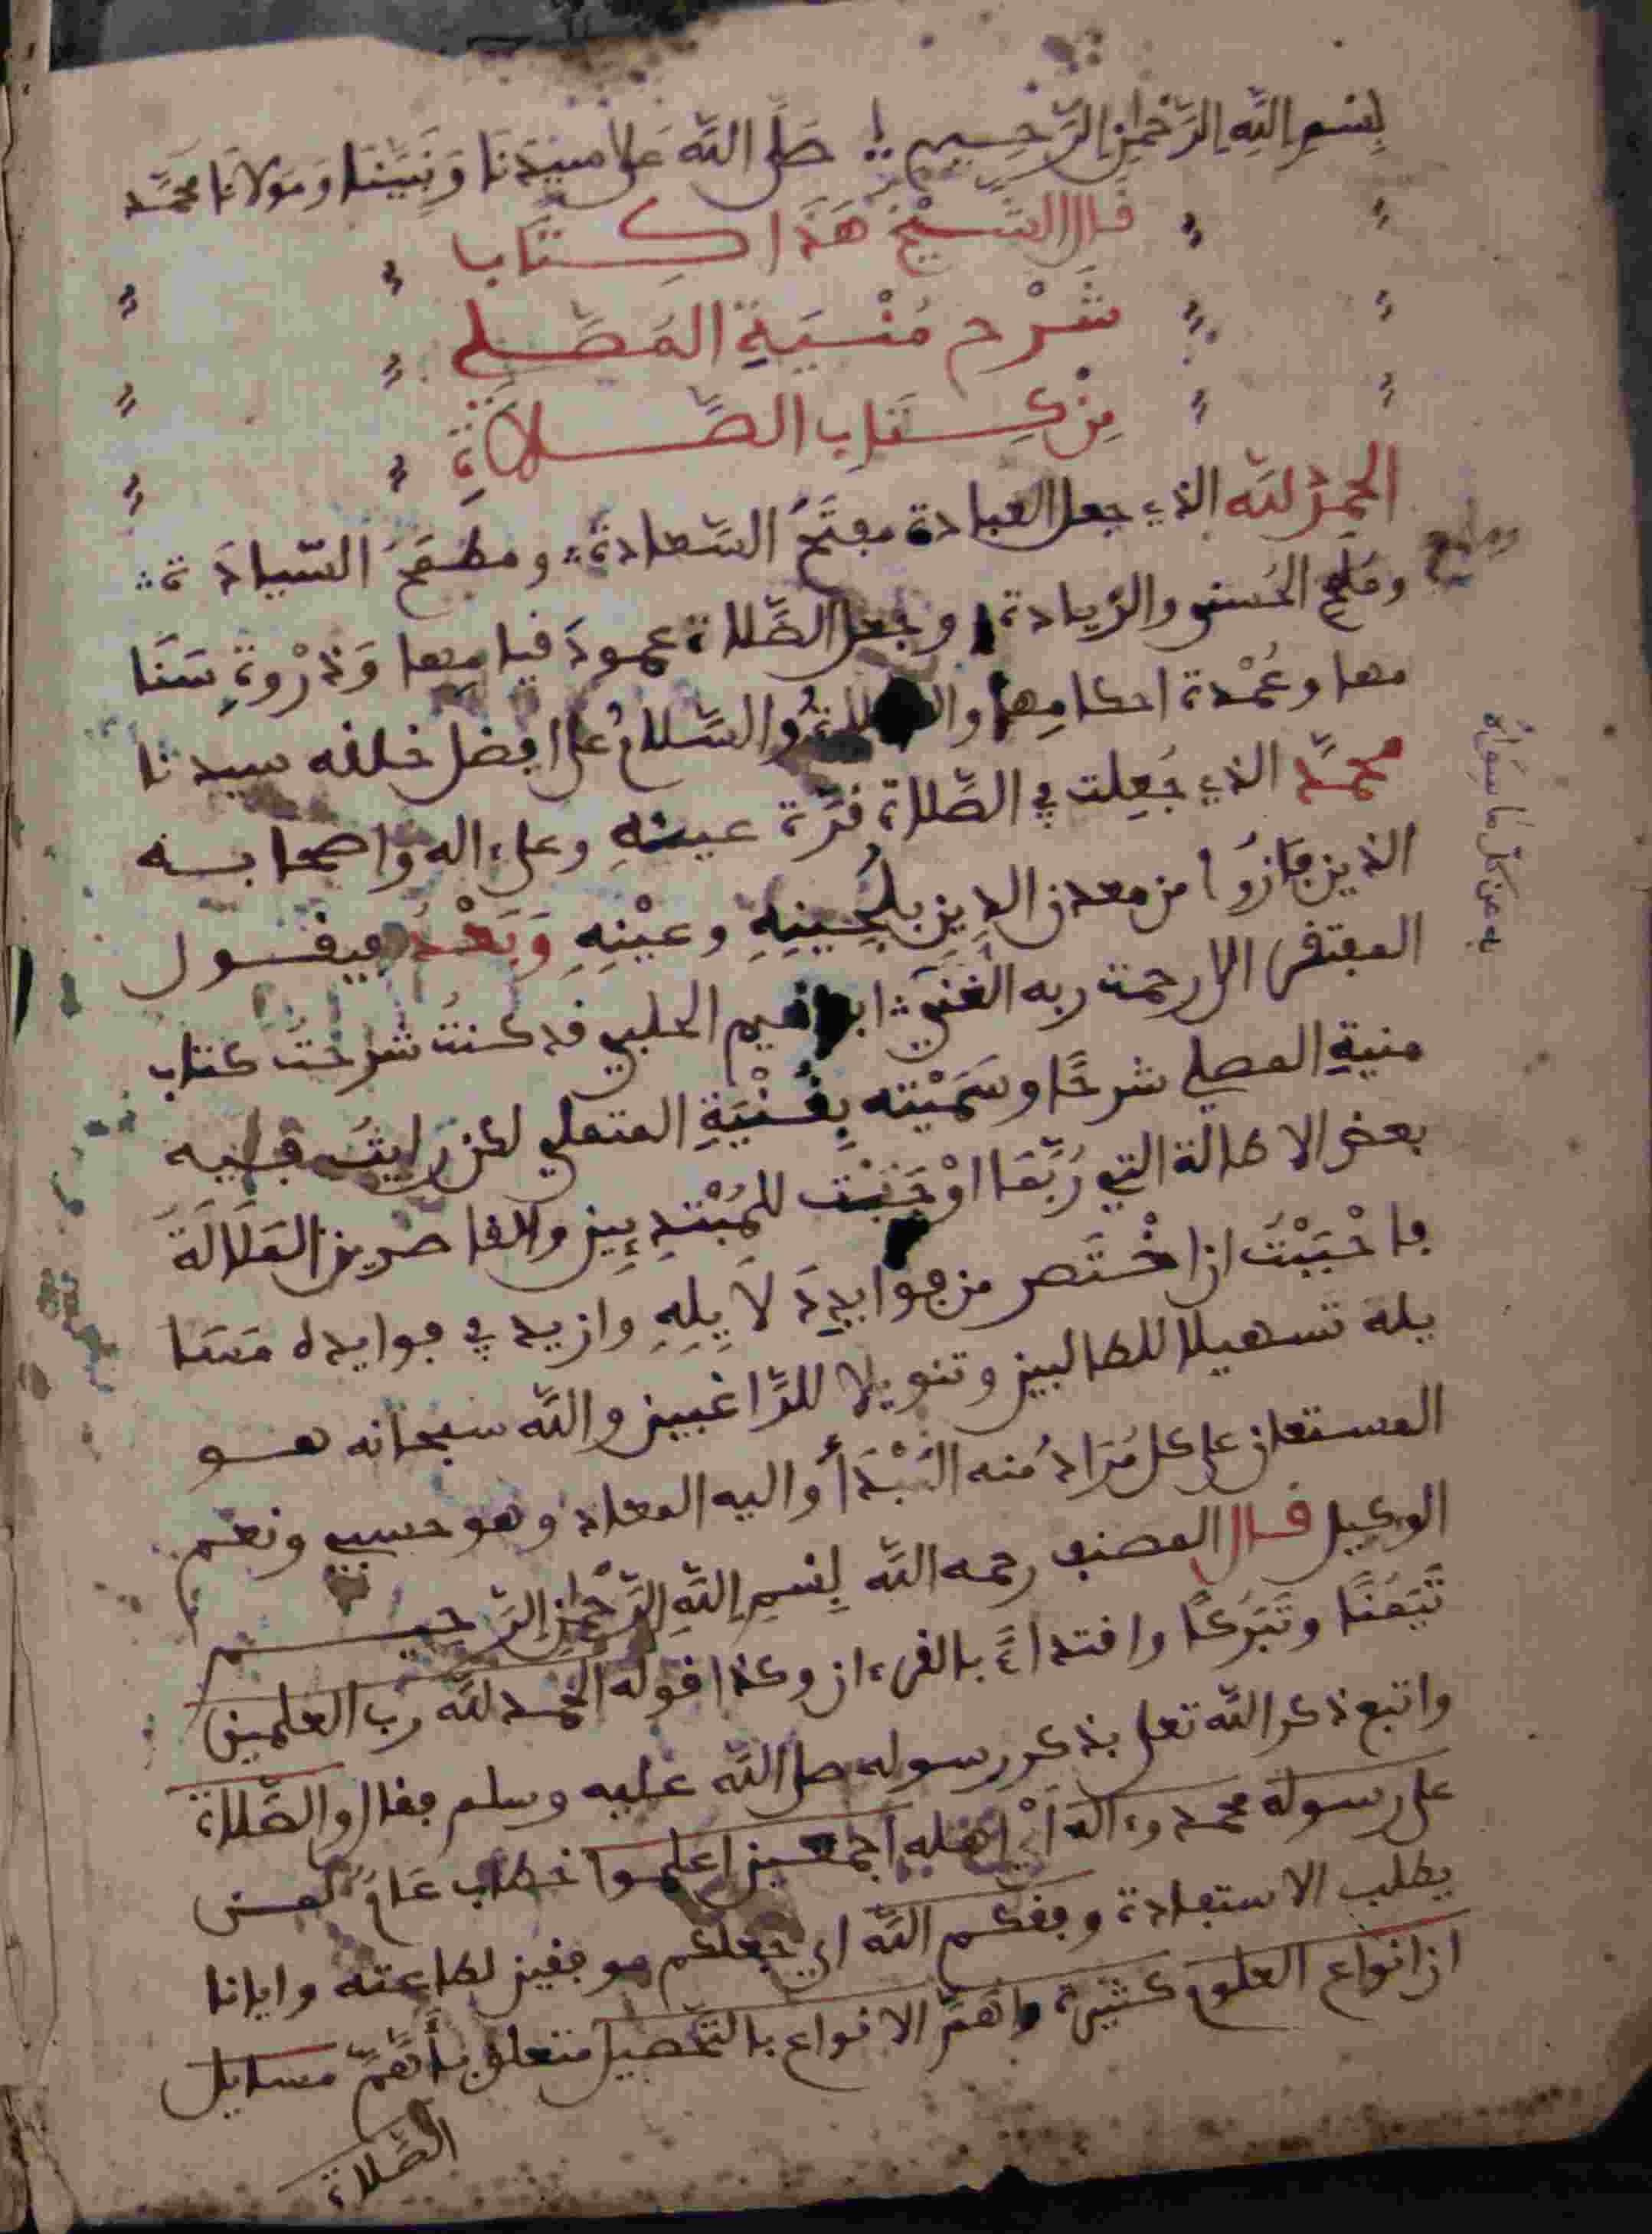 بِسْمِ اللَّهِ الرَّحْمَنِ الرَّحِيمِ صَلَّى اللَّه عَلَى سَيِّدِنَا وَنَبِيِّنَا وَمَوْلَانَا مُحَمَّد
قَالَ الشَّيْخُ هَذَا كِتَاب
شَرْح مُنْيَةِ المُصَلِّي
مِنْ كِتَابِ الصَّلَاةِ
الحمدُ لله الذي جعل العبادة مفتَحَ السَّعادة ومطمَحَ السّيادَة
الحُسنى والزيادة وجعل الصَّلاة عمودَ قيامِها وَذرْوَةِ سَنَا
مها وعُمْدة احكامِها والصلاةُ والسَّلامُ على افضل خلقه سيدنا
محمَّد الذي جُعِلت في الصَّلاة قُرَّة عينهِ وعلى اله واصحابه
الذين فازُوا من معدن الدِين بلُجَينِهِ وعيْنِهِ وَبَعْدُ فيقول
المفتقر الى رحمت ربه الغَنيّ ابراهيم الحلبي قد كنتُ شرحتُ كتاب
منيةِ المصلي شرحًا وسَمَّيْته بِغُنْيَةِ المتملي لكن رايتُ فيه
بعض الاطالة التي رُبَّمَا اوْجَبَتْ للمُبْتدِيِين والقاصرين المَلَالَةَ
فاحْبَبْتُ ان اخْتَصر من فوايدِهِ وازيد في فوايده مسا
يله تسهيلا للطالبين وتنويلا للرَّاغبين والله سبحانه هو
المستعان على كل مُرَاد مُنه المَبْدَأُ واليه المعاد وهو حسبي ونعم
الوكيل قال المصنف رحمه الله بِسْمِ اللهِ الرَّحْمنِ الرَّحِيم
تَيَمُّنًا وتَبَرُّكًا واقتداءً بالقرءان وكذا قوله الحمد لله رب العلمين
واتبع ذكر الله تعلى بذكر رسوله صلى الله عليه وسلم فقال والصَّلاة
على رسوله محمد وءاله أَيْ اهله اجمعين اعلموا خطاب عَامّ لمن
يطلب الاستفادة وفقكم الله اي جعلكم موفقين لطاعته وايانا
ان انواع العلوم كثيرة واهَمّ الانواع بالتَّحصيل متعلق بأهَمّ مسايل
الصَّلاة
به عن كل مَا سِوَاهُ